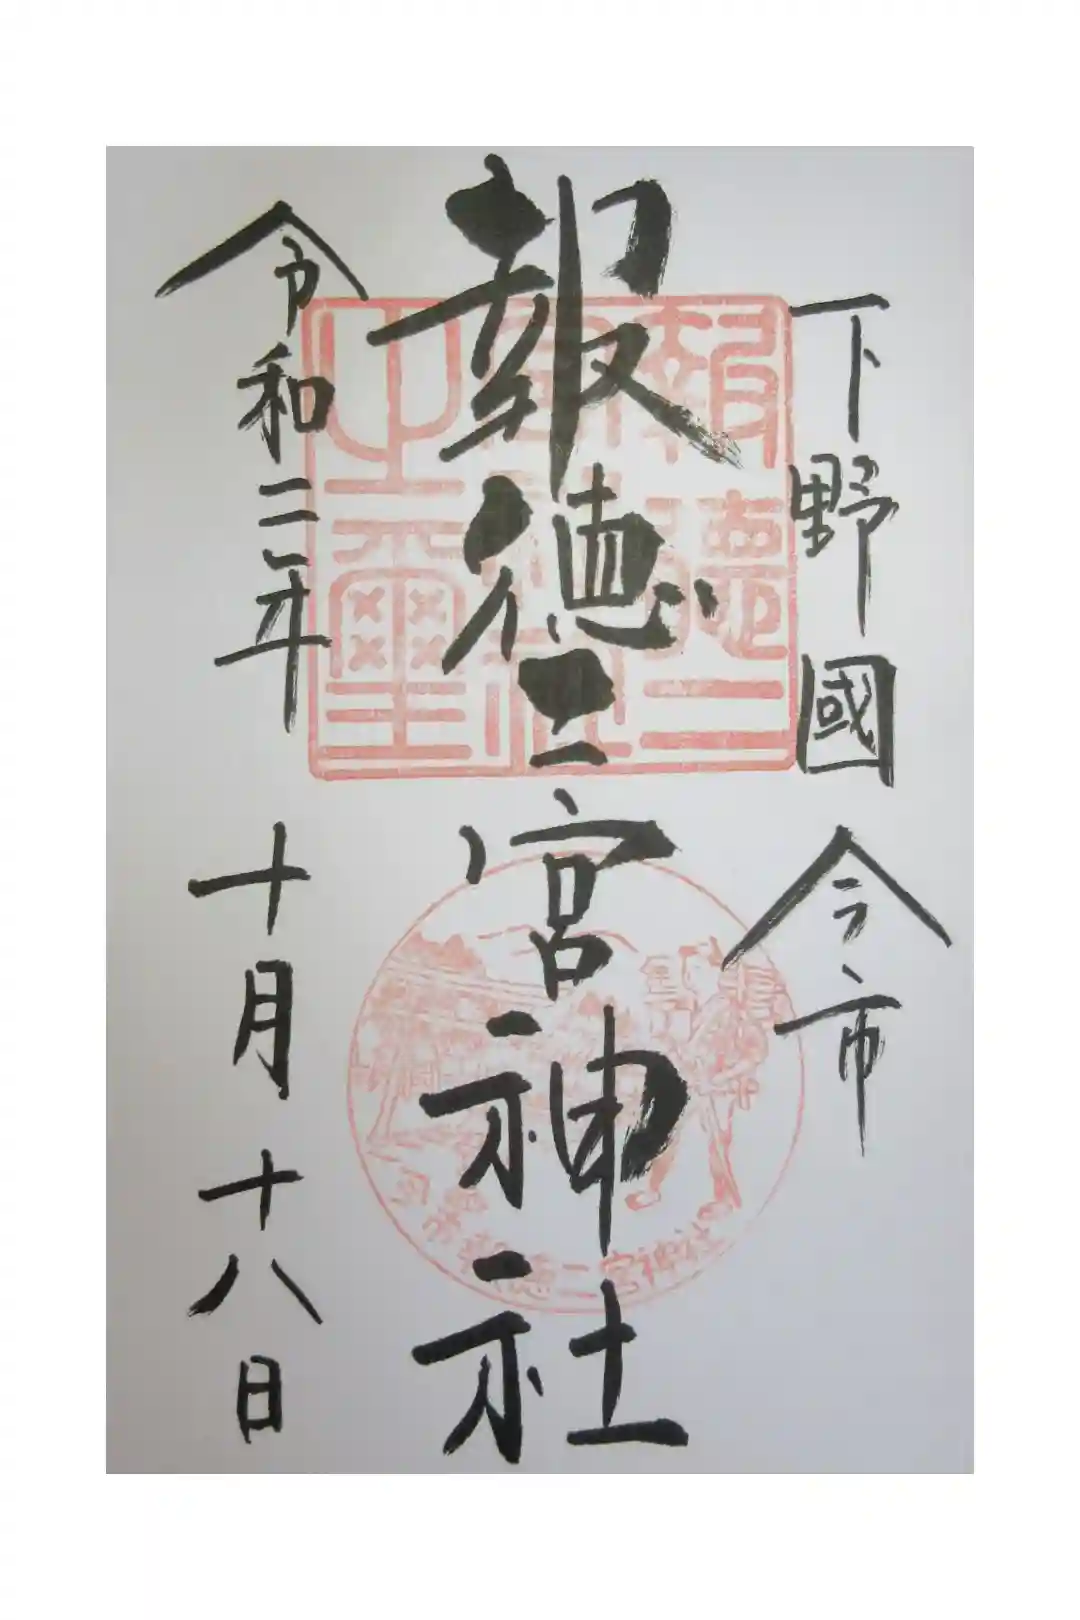 下野國 今市
報徳二宮神社
令和二年 十月十八日
報徳二
宮神社
之璽
今市 報徳二宮神社